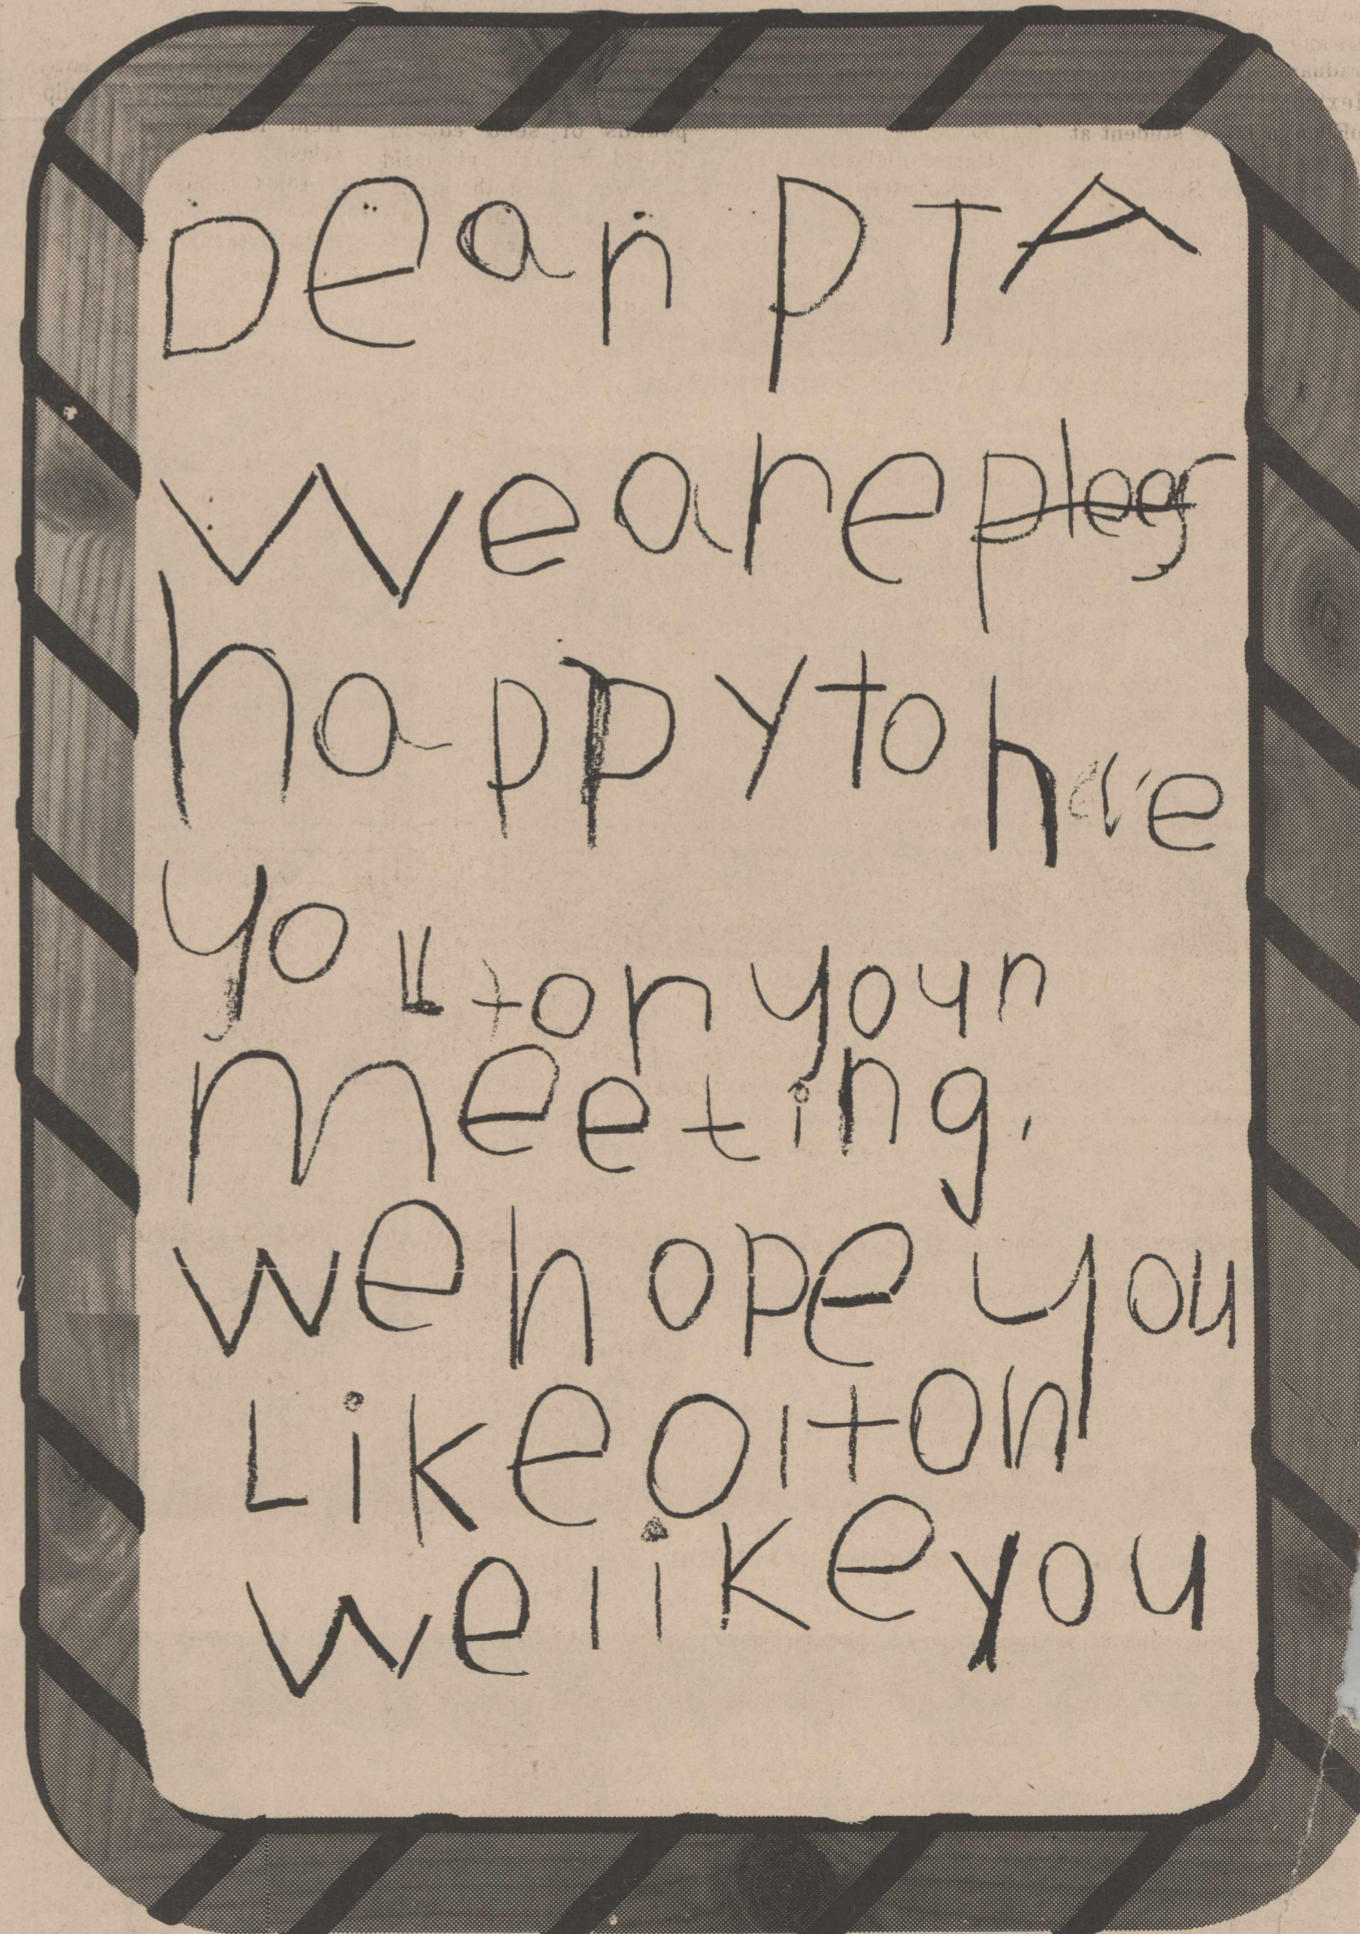 Dear PTA
we are pleas
happy to have
you for your
meeting.
we hope you
Like oiton
we like you